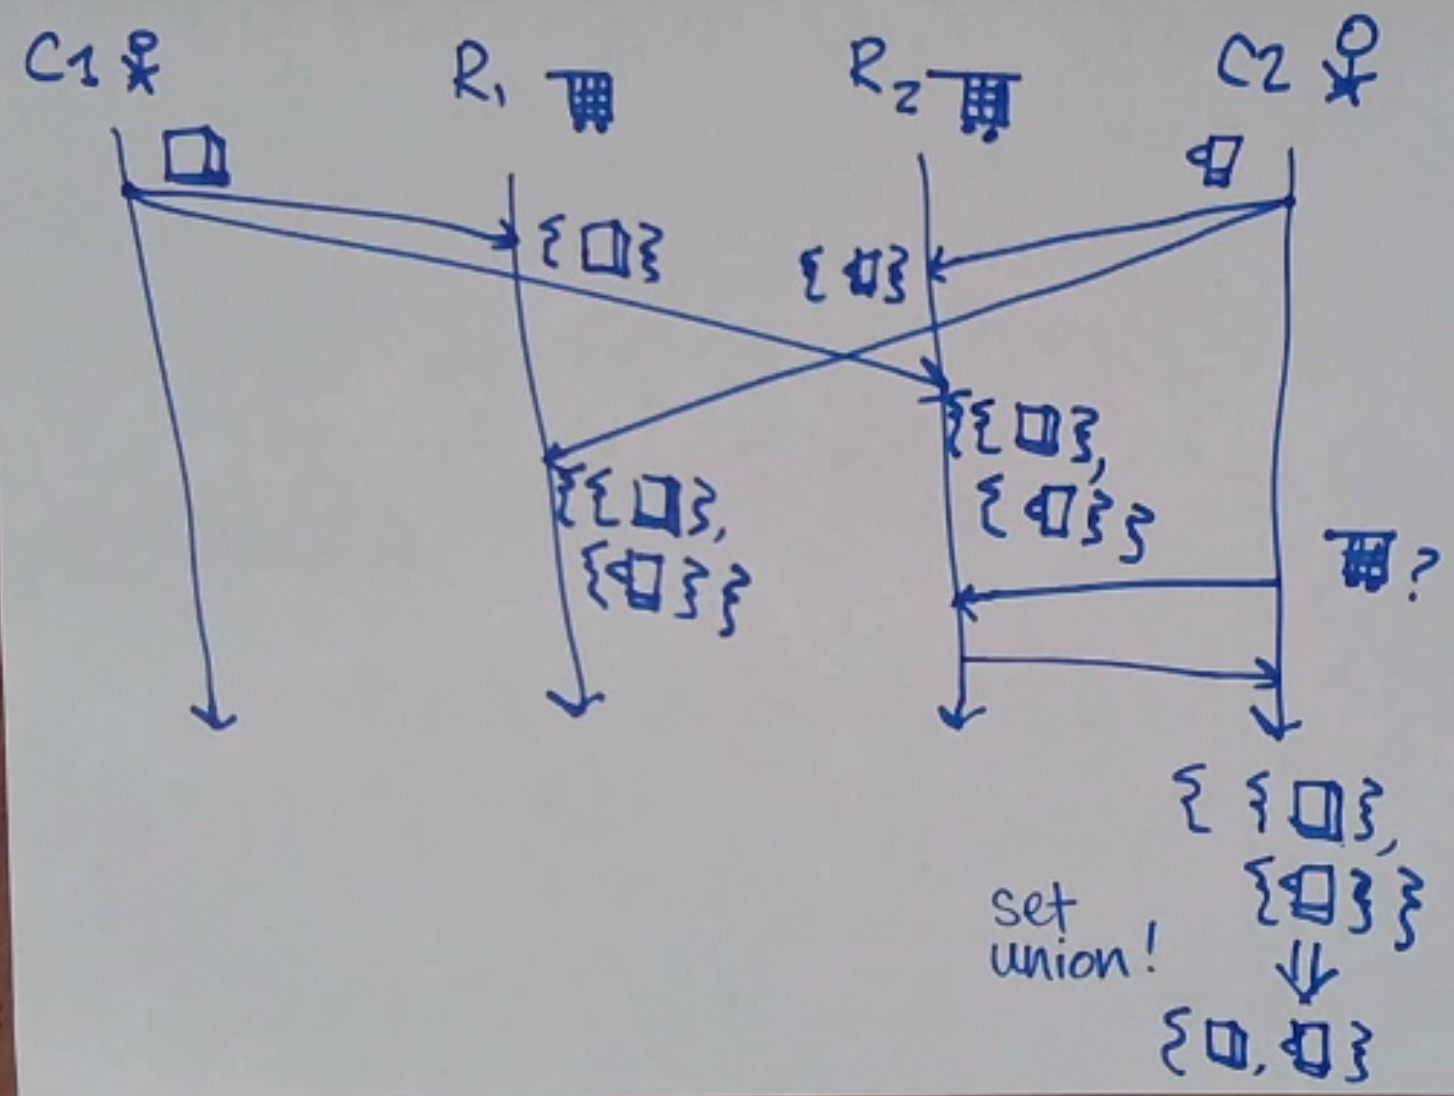 C1 R₁ R₂ C2
{ }
{ }
{{ },
{ }}
{{ },
{ }}
?
{ { },
{ } }
set
union!
⇓
{ , }